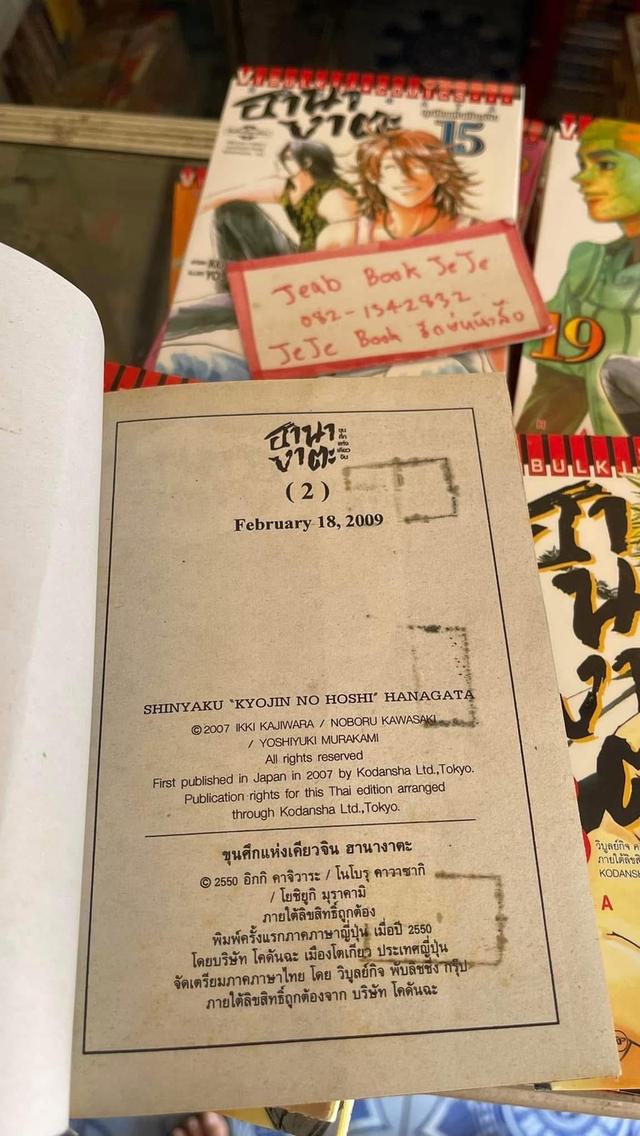 VIBULKIJ COMICS
ฮานา
งาตะ
15
Jeab Book JeJe
082-1342832
JeJe Book
19
BULKIJ
ฮานา
งาตะ
ขุน
ศึก
แห่ง
เคียว
จิน
( 2 )
February 18, 2009
SHINYAKU "KYOJIN NO HOSHI" HANAGATA
©2007 IKKI KAJIWARA / NOBORU KAWASAKI
/ YOSHIYUKI MURAKAMI
All rights reserved
First published in Japan in 2007 by Kodansha Ltd.,Tokyo.
Publication rights for this Thai edition arranged
through Kodansha Ltd.,Tokyo.
ขุนศึกแห่งเคียวจิน ฮานางาตะ
© 2550 อิกกิ คาจิวาระ / โนโบรุ คาวาซากิ
/ โยชิยูกิ มุราคามิ
ภายใต้ลิขสิทธิ์ถูกต้อง
พิมพ์ครั้งแรกภาคภาษาญี่ปุ่น เมื่อปี 2550
โดยบริษัท โคดันฉะ เมืองโตเกียว ประเทศญี่ปุ่น
จัดเตรียมภาคภาษาไทย โดย วิบูลย์กิจ พับลิชชิ่ง กรุ๊ป
ภายใต้ลิขสิทธิ์ถูกต้องจาก บริษัท โคดันฉะ
ฮา
นา
งา
ต
วิบูลย์กิจ
ภายใต้ลิขสิ
KODANSH
A